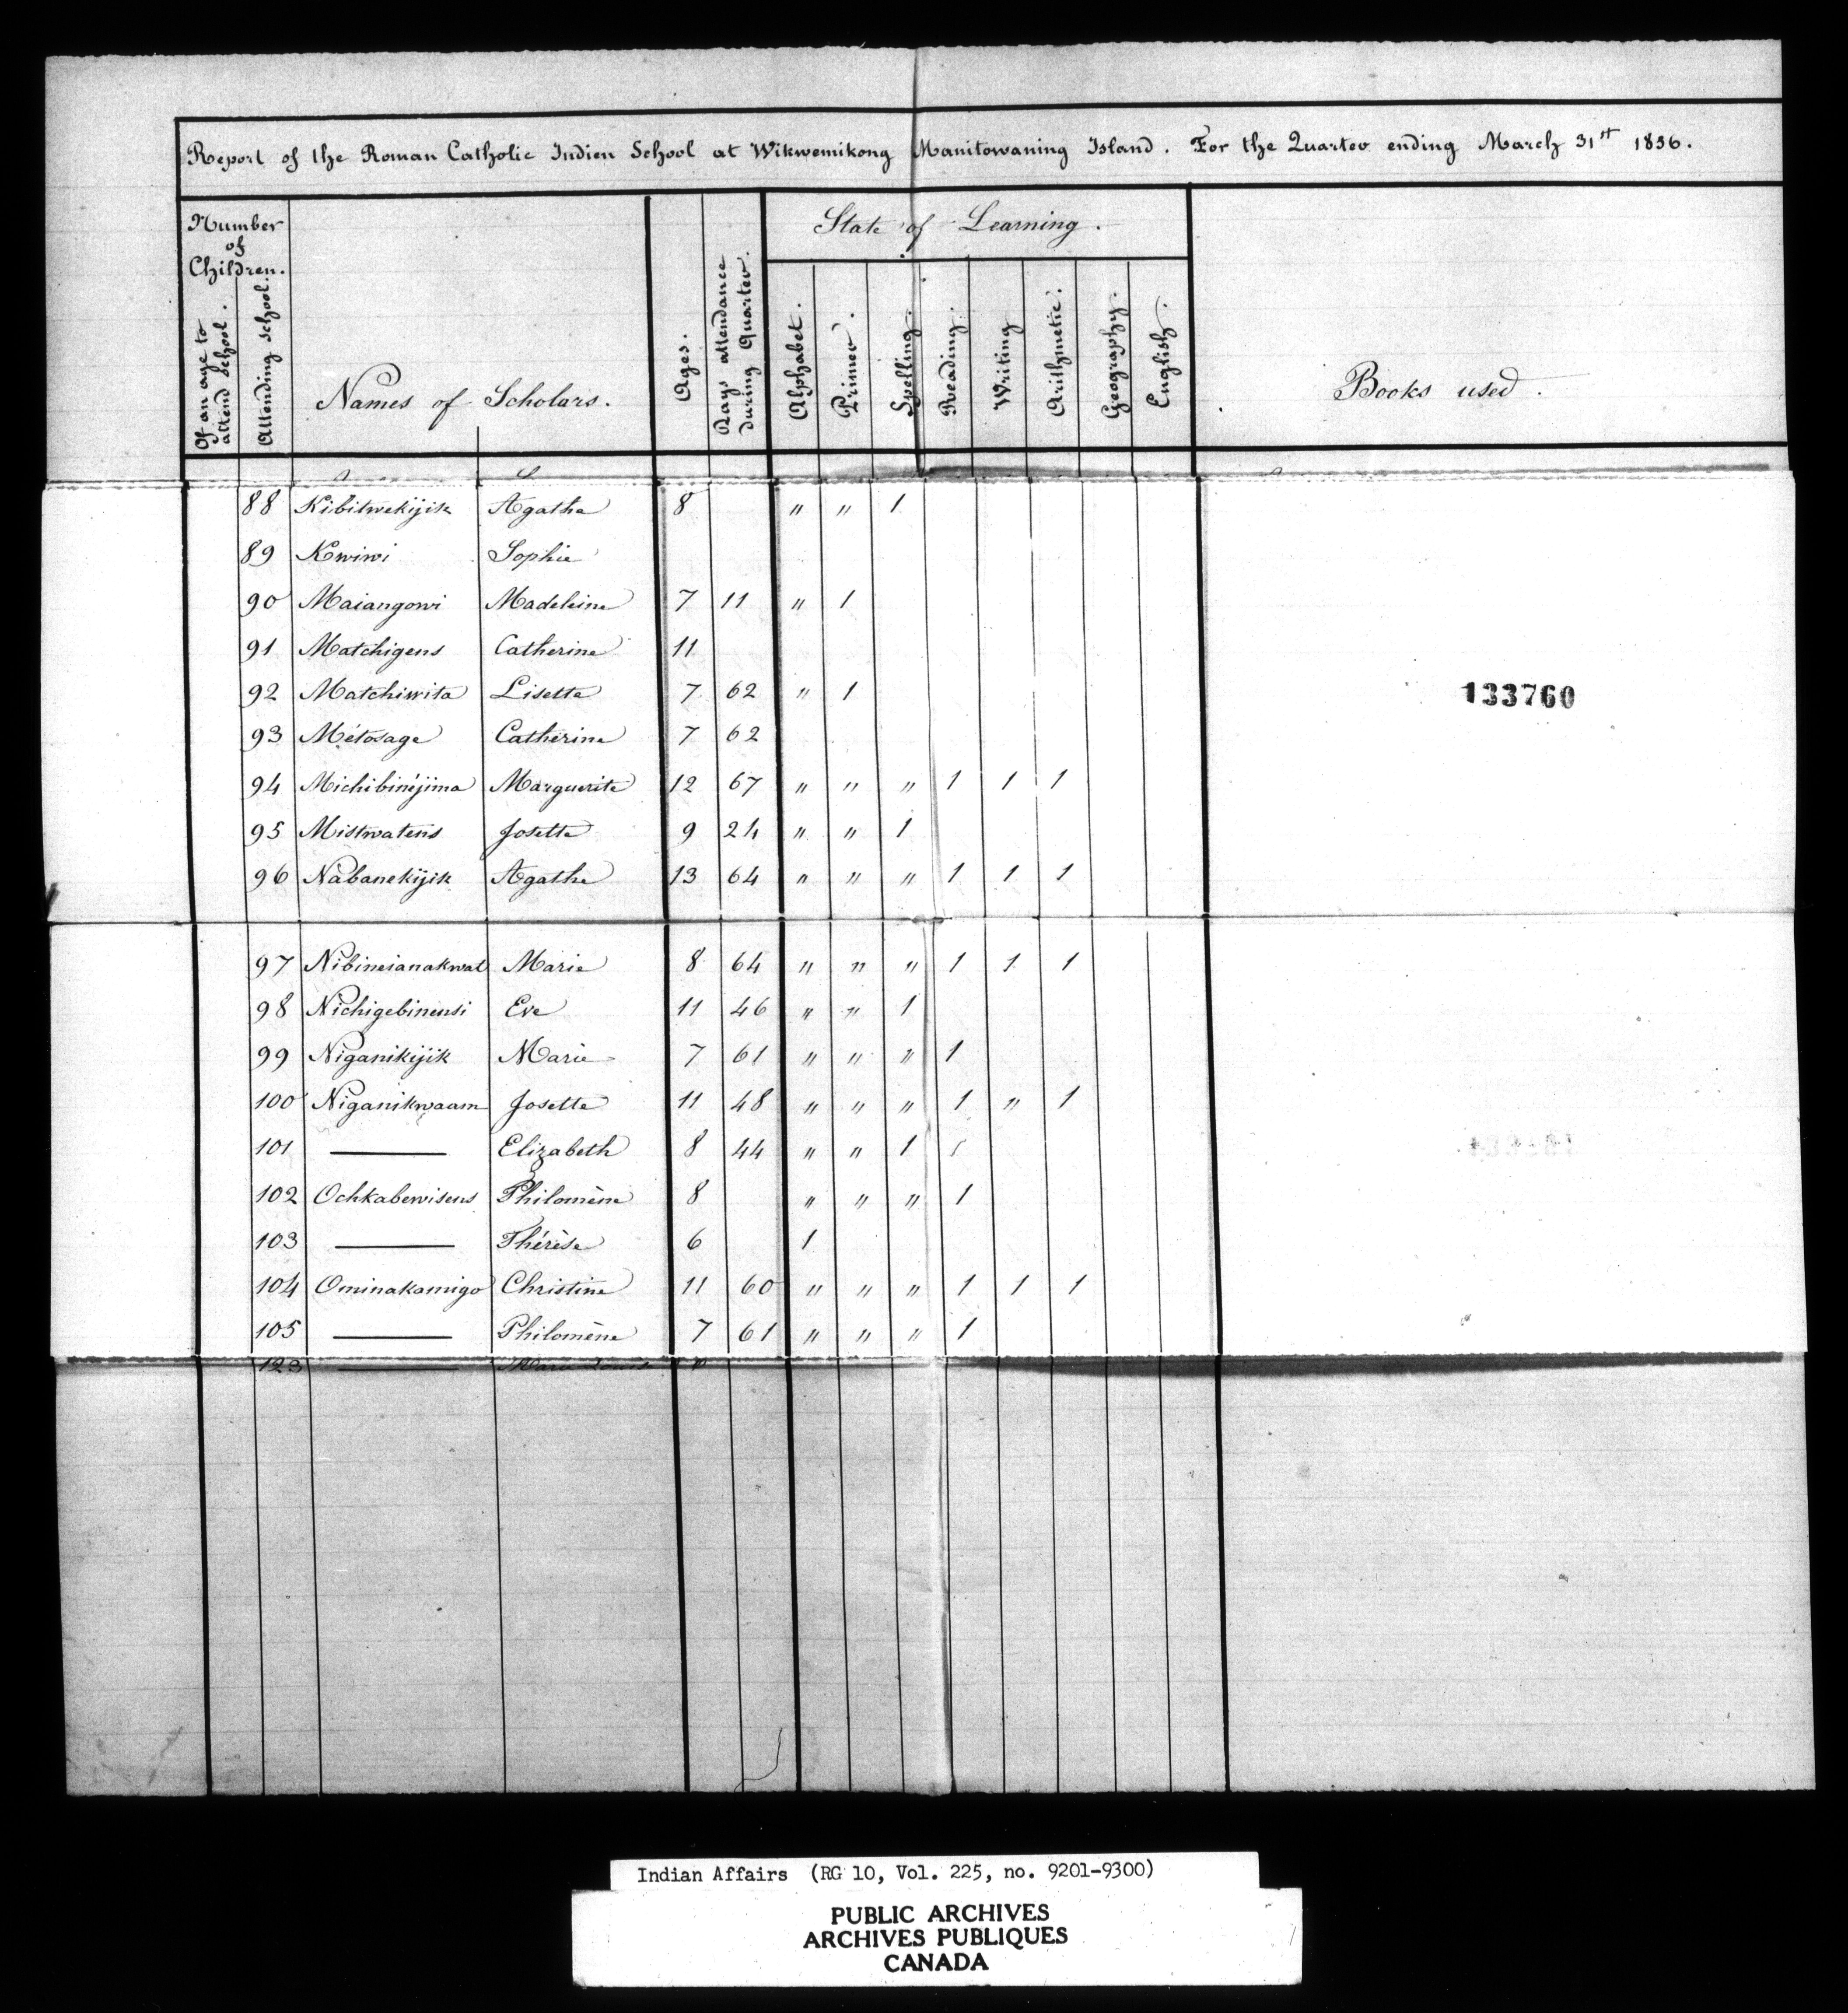 Report of the Roman Catholic Indien School at Wikwemikong Manitowaning Island. For the Quarter ending March 31st 1856.
Number of Children.
Of an age to attend school.
Attending school.
Names of Scholars.
Ages.
Days attendance during Quarter.
State of Learning.
Alphabet.
Primer.
Spelling.
Reading.
Writing
Arithmetic.
Geography.
English.
Books used.
88 Kibitwekijik Agathe 8 " " 1
89 Kwiwi Sophie
90 Maiangowi Madeleine 7 11 " 1
91 Matchigens Catherine 11
92 Matchiwita Lisette 7 62 " 1
133760
93 Métosage Catherine 7 62
94 Michibinéjima Marguerite 12 67 " " " 1 1 1
95 Mistwatens Josette 9 24 " " 1
96 Nabanekijik Agathe 13 64 " " " 1 1 1
97 Nibineianakwat Marie 8 64 " " " 1 1 1
98 Nichigebinensi Eve 11 46 " " 1
99 Niganikijik Marie 7 61 " " " 1
100 Niganikwaam Josette 11 48 " " " 1 " 1
101 —— Elizabeth 8 44 " " 1
102 Ochkabewisens Philomène 8 " " " 1
103 —— Thérèse 6 1
104 Ominakamigo Christine 11 60 " " " 1 1 1
105 —— Philomène 7 61 " " " 1
123 —— Marie Louise
Indian Affairs (RG 10, Vol. 225, no. 9201-9300)
PUBLIC ARCHIVES
ARCHIVES PUBLIQUES
CANADA